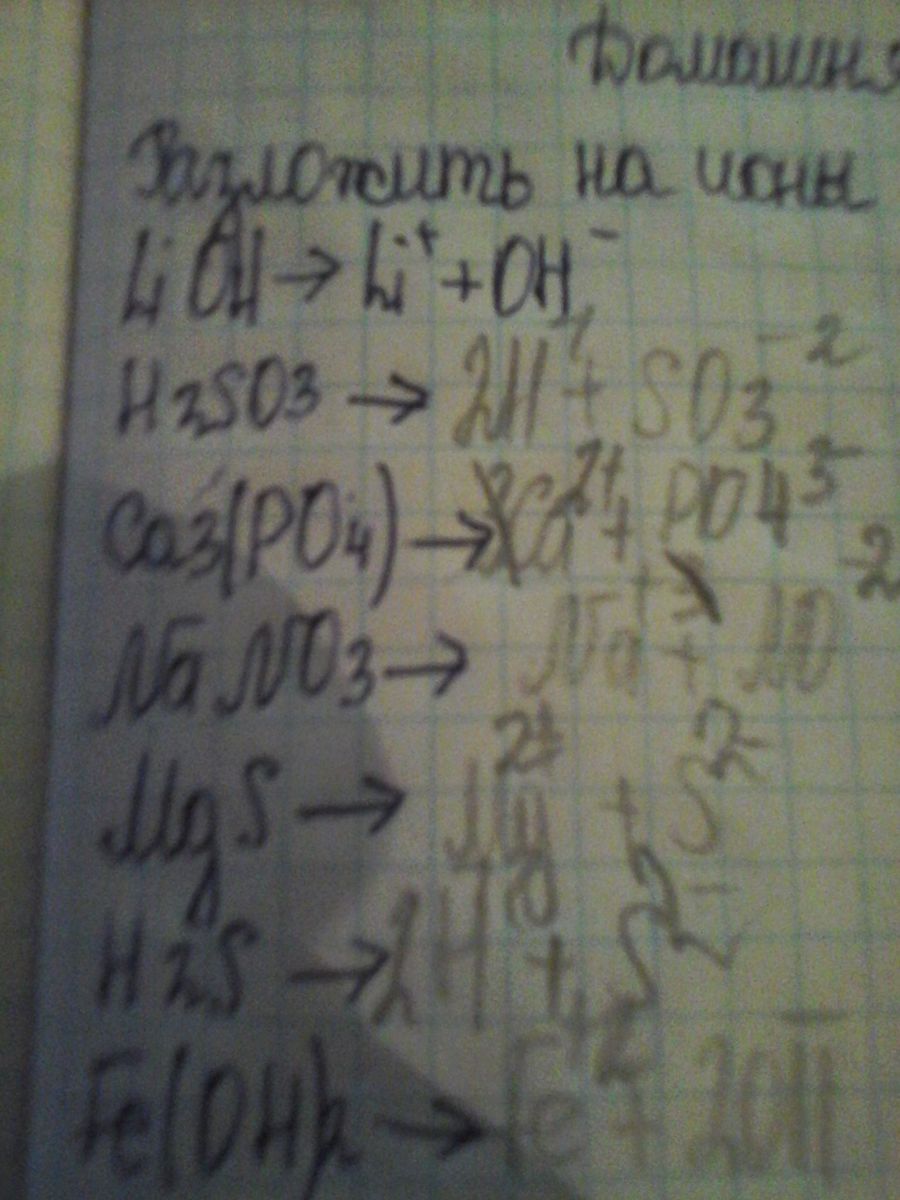 Домашня
Разложить на ионы
LiOH → Li⁺ + OH⁻
H₂SO₃ → 2H⁺ + SO₃⁻²
Ca₃(PO₄) → Ca²⁺ + PO4³⁻
NaNO₃ → Na⁺ + NO⁻²
MgS → Mg²⁺ + S²⁻
H₂S → 2H⁺ + S²⁻
Fe(OH)₂ → Fe⁺² + 2OH⁻